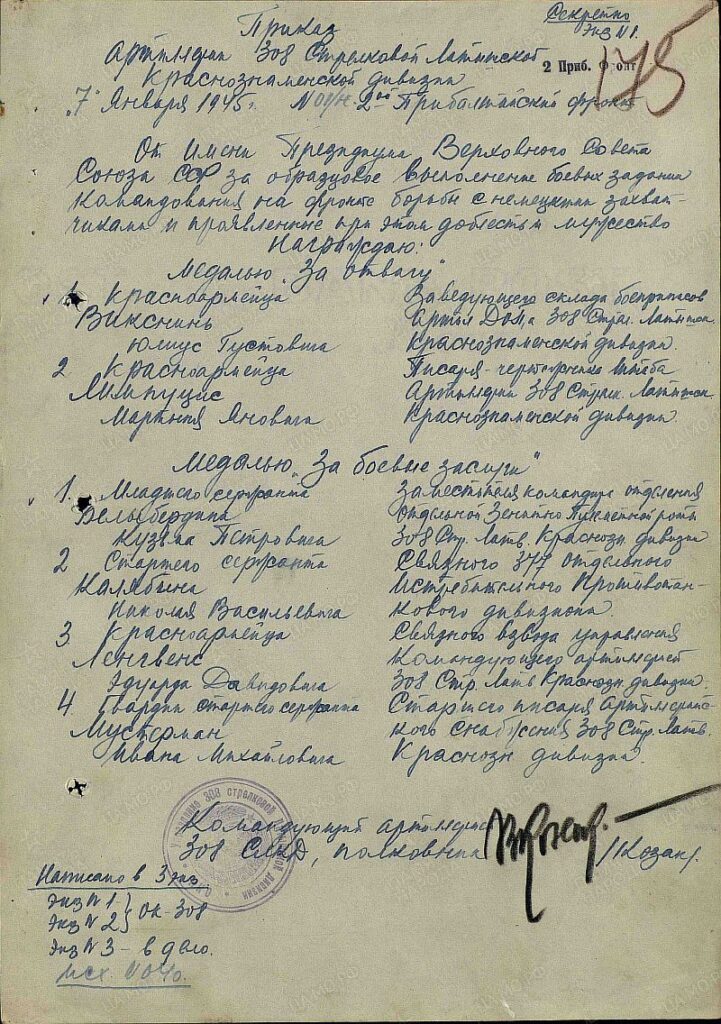 Секретно
Экз №1.
Приказ
Артиллерии 308 Стрелковой Латышской
Краснознаменской дивизии
2 Приб. Фронт
175
"7" Января 1945г. № 01/н 2ой Прибалтийский фронт
От имени Президиума Верховного Совета
Союза ССР за образцовое выполнение боевых заданий
Командования на фронте борьбы с немецкими захват-
чиками и проявленные при этом доблесть и мужество
Награждаю:
Медалью "За отвагу"
1. Красноармейца Заведующего склада боеприпасов
Викснинь Артил 308 Стрел. Латышск.
Юлиус Густовича Краснознаменской дивизии.
2 Красноармейца Писаря-чертежника штаба
Лимпуцис Артиллерии 308 Стрелк. Латышск.
Мартыня Яновича Краснознаменской дивизии.
Медалью "За боевые заслуги"
1. Младшего сержанта Заместителя командира отделения
Белобердина отдельной Зенитно Пулеметной роты
Кузьма Петровича 308 Стр. Латв. Краснозн. дивизии
2 Старшего сержанта Связного 377 отдельного
Калябина Истребительного Противотан-
Николая Васильевича кового дивизиона.
3 Красноармейца Связного взвода управления
Ленгвенс Командующего артиллерией
Эдуарда Давидовича 308 Стр Латв Краснозн. дивизии.
4. Гвардии старшего сержанта Старшего писаря Артиллерийс-
Мустерман кого снабжения 308 Стр. Латв.
Ивана Михайловича Краснозн дивизии.
Командующий артиллерией
308 СЛКД, полковник /Козак/.
Написано в 3 экз
Экз №1
Экз №2 } ОК-308
Экз №3 - в дело.
исх. №04/о.